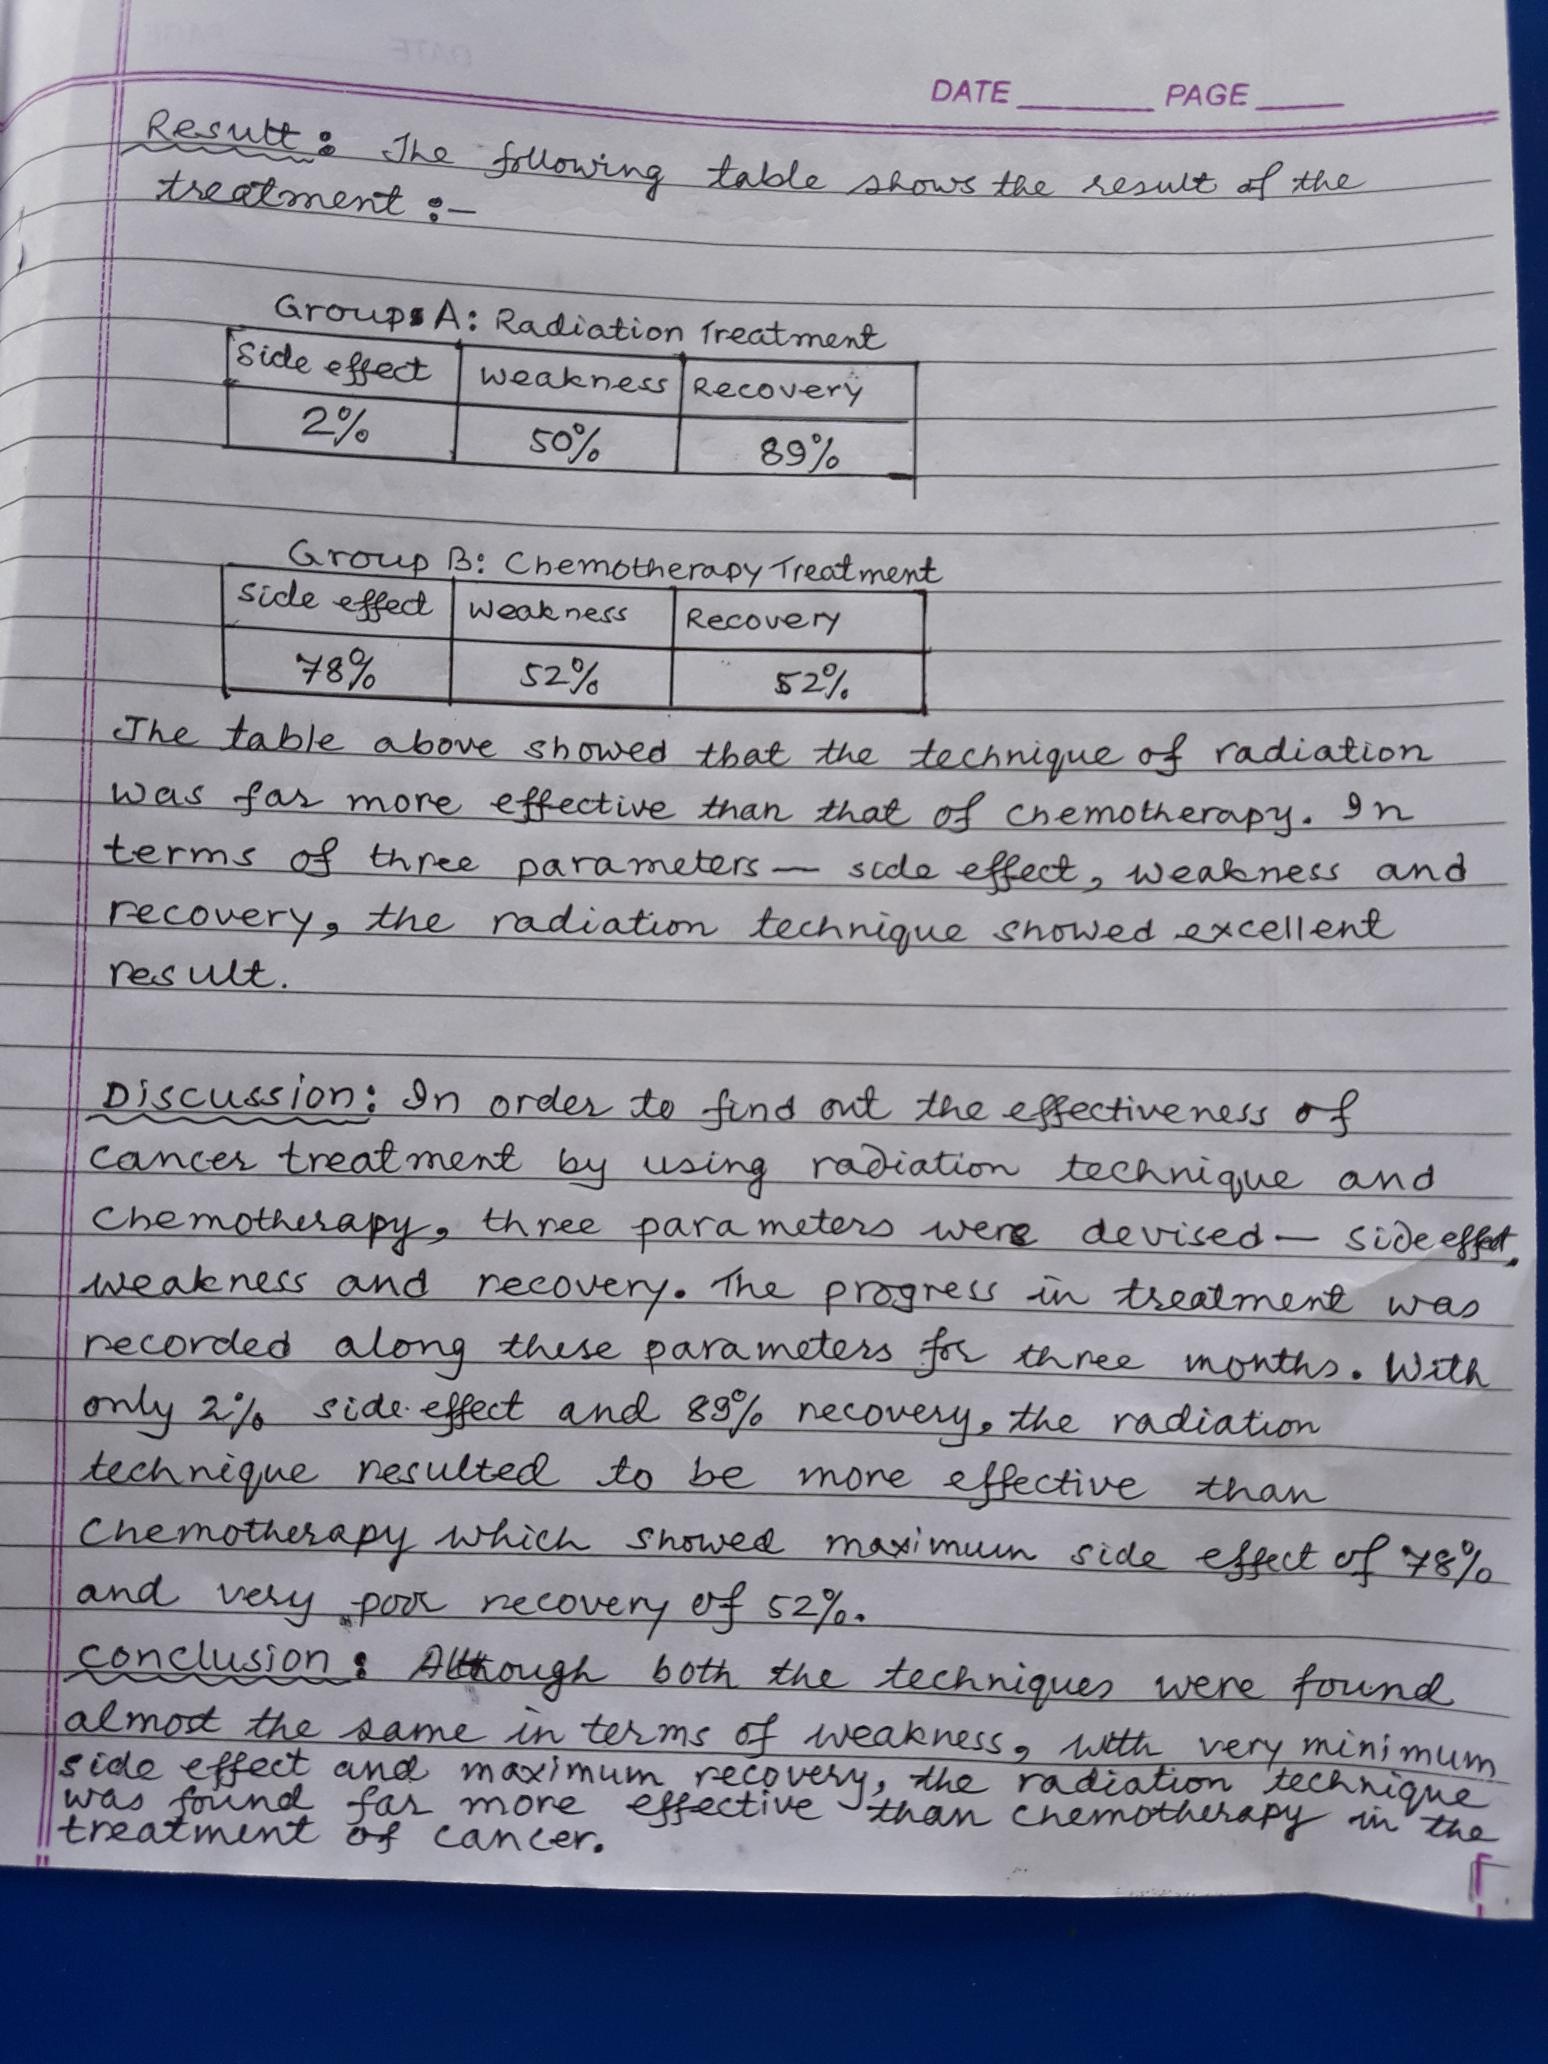 DATE PAGE
Result: The following table shows the result of the
treatment :-
Groups A: Radiation Treatment
Side effect Weakness Recovery
2% 50% 89%
Group B: Chemotherapy Treatment
Side effect Weakness Recovery
78% 52% 52%
The table above showed that the technique of radiation
was far more effective than that of chemotherapy. In
terms of three parameters — side effect, weakness and
recovery, the radiation technique showed excellent
result.
Discussion: In order to find out the effectiveness of
cancer treatment by using radiation technique and
chemotherapy, three parameters were devised — side effect,
weakness and recovery. The progress in treatment was
recorded along these parameters for three months. With
only 2% side effect and 89% recovery, the radiation
technique resulted to be more effective than
chemotherapy which showed maximum side effect of 78%
and very poor recovery of 52%.
Conclusion: Although both the techniques were found
almost the same in terms of weakness, with very minimum
side effect and maximum recovery, the radiation technique
was found far more effective than chemotherapy in the
treatment of cancer.